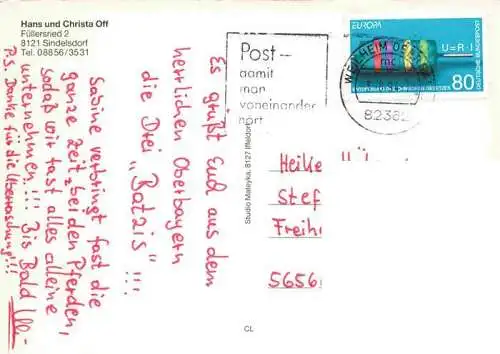 Hans und Christa Off
Füllersried 2
8121 Sindelsdorf
Tel. 08856/3531
Es grüßt Euch aus dem
herrlichen Oberbayern
die Drei „Batzis" !!!
Sabine verbringt fast die
ganze Zeit bei den Pferden,
sodaß wir fast alles alleine
unternehmen!!! Bis Bald
P.S. Danke für die Überraschung!!!
Studio Mateyka, 8127 Iffeldorf
CL
Post –
damit
man
voneinander
hört
WEILHEIM
mc
82362
EUROPA
U=R·I
DEUTSCHE BUNDESPOST
80
Heike
Stef
Freih
5656